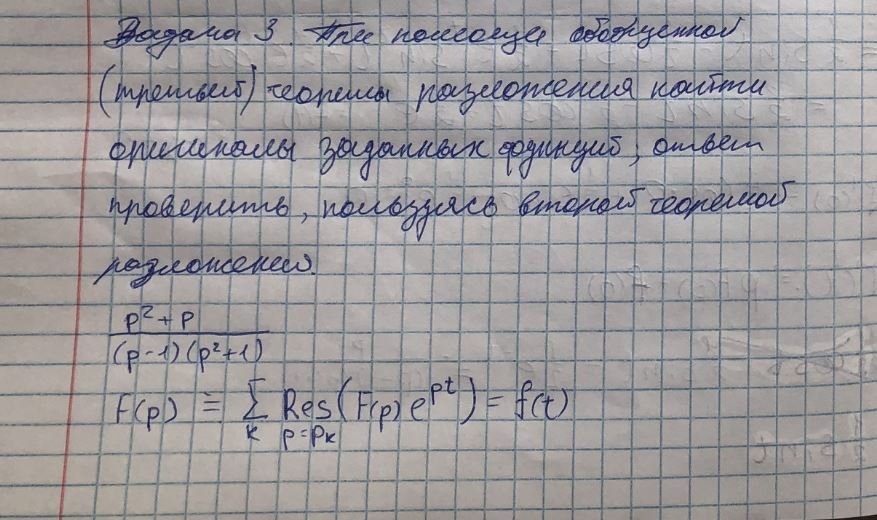 Задача 3. При помощи обобщенной
(третьей) теоремы разложения найти
оригиналы заданных функций, ответ
проверить, пользуясь второй теоремой
разложения.
p²+p
(p-1)(p²+1)
F(p) ≡ Σ Res (F(p) e^{pt}) = f(t)
k p=p_k